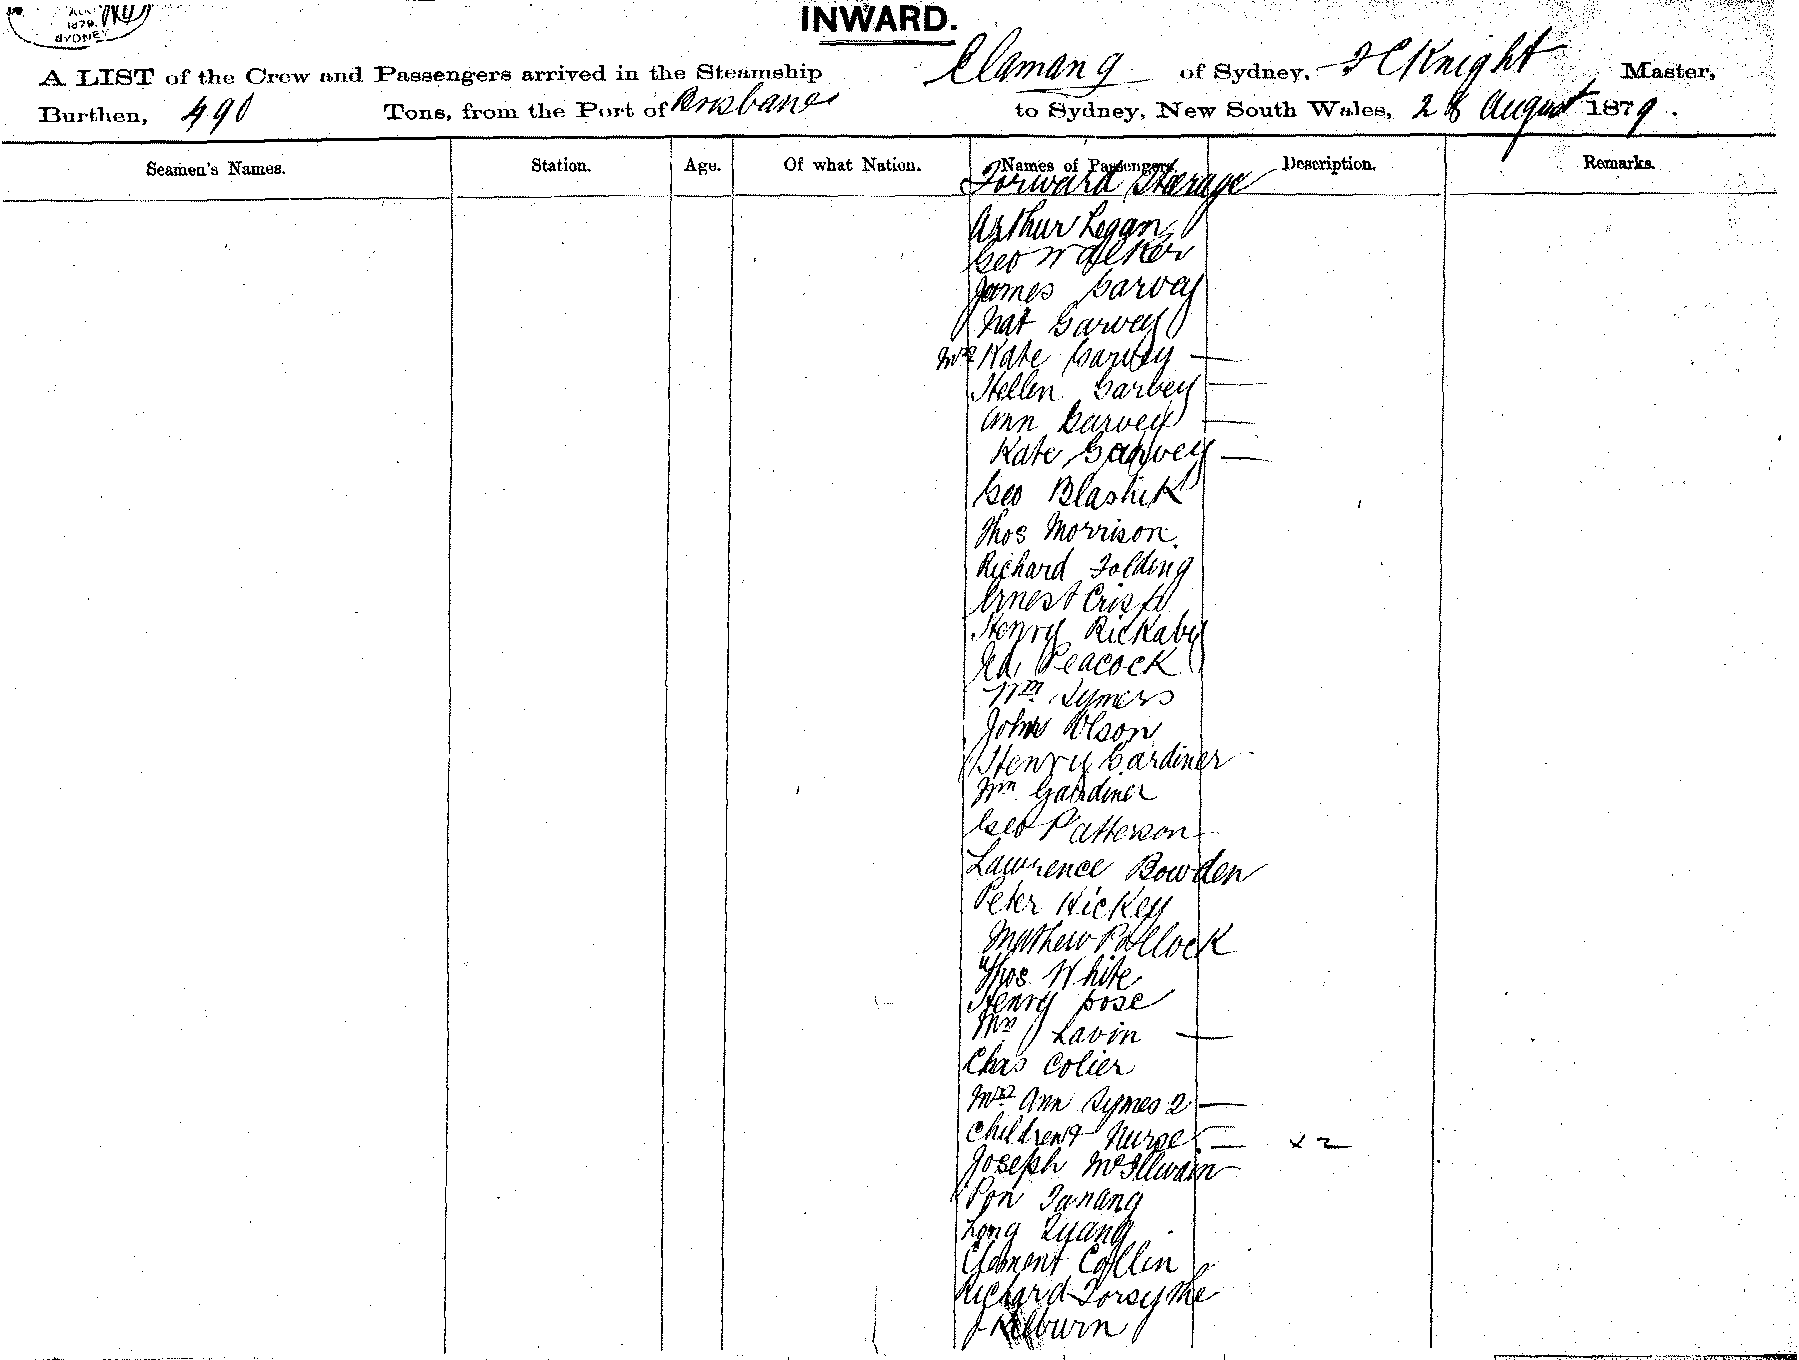 1879
SYDNEY
INWARD.
A LIST of the Crew and Passengers arrived in the Steamship Elamang of Sydney, Knight Master,
Burthen, 490 Tons, from the Port of Brisbane to Sydney, New South Wales, 28 August 1879.
Seamen's Names. Station. Age. Of what Nation. Names of Passengers. Description. Remarks.
Forward Steerage
Arthur Logan
Geo Walker
James Garvey
Nat Garvey
Mrs Kate Garvey —
Hellen Garvey —
Ann Garvey —
Kate Garvey —
Geo
Thos Morrison.
Richard Folding
Ernest Crisp
Henry Rickaby
Ed. Peacock
Wm Symers
John Olson
Henry Gardiner
Wm Gardiner
Geo Patterson
Lawrence Bowden
Peter Hickey
Mathew Pollock
Thos White
Henry
Mrs Lavin —
Chas Colier
Mrs Ann Symes 2 —
Children & Nurse — x 2
Joseph McIllwain
Pon
Long
Clement Collin
Richard Forsythe
J Kilburn